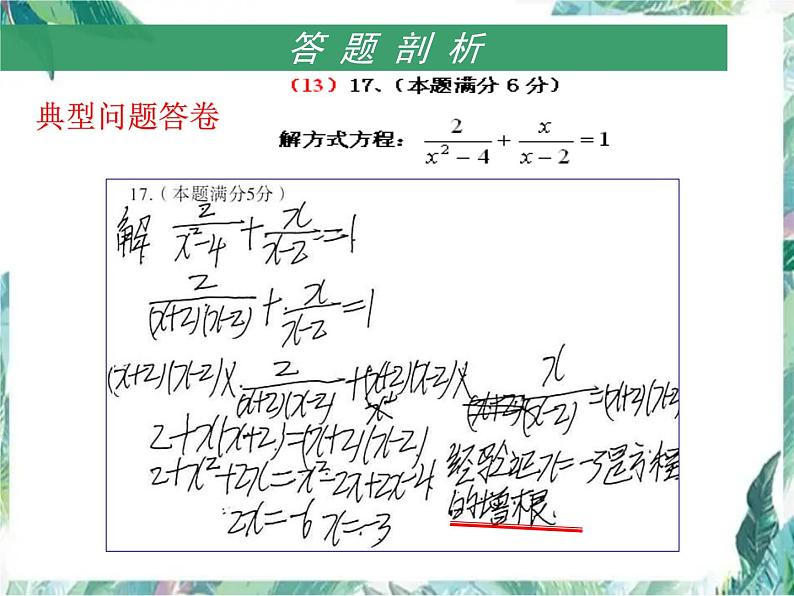 答 题 剖 析
(13) 17、(本题满分 6 分)
典型问题答卷
解方式方程: 2/(x²-4) + x/(x-2) = 1
17.(本题满分5分)
解 2/(x²-4) + x/(x-2) = 1
2/((x+2)(x-2)) + x/(x-2) = 1
(x+2)(x-2)× 2/((x+2)(x-2)) + (x+2)(x-2)× x/(x-2) = (x+2)(x-2)
2+x(x+2)=(x+2)(x-2)
2+x²+2x=x²-2x+2x-4
2x=-6 x=-3
经验证x=-3是方程
的增根.